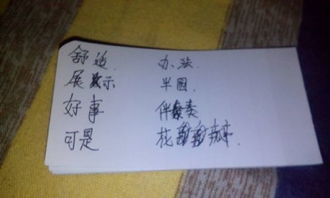 舒适 办法
展示 半圆
好事 伴奏
可是 找